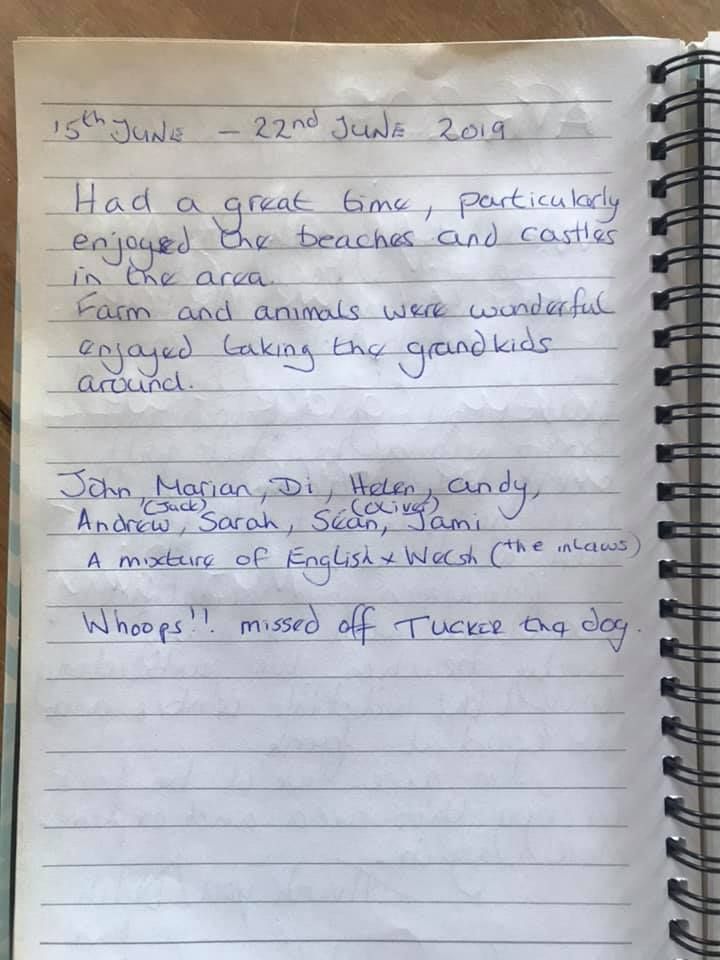 15th JUNE - 22nd JUNE 2019
Had a great time, particularly
enjoyed the beaches and castles
in the area.
Farm and animals were wonderful
enjoyed taking the grandkids
around.
John, Marian, Di, Helen, andy,
(Jack) (Oliver)
Andrew, Sarah, Séan, Jami
A mixture of English & Welsh (the inLaws)
Whoops!! missed off TUCKER the dog.